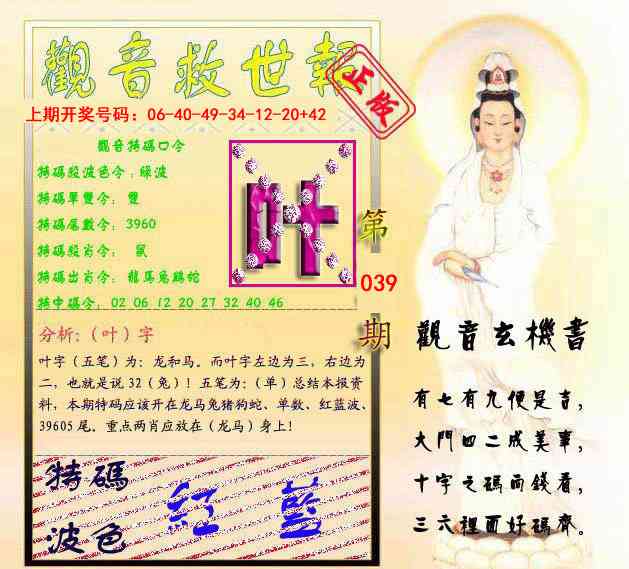 觀音救世報
正版
上期开奖号码：06-40-49-34-12-20+42
觀音特碼口令
特碼殺波色令：綠波
特碼單雙令：雙
特碼尾數令：3960
特碼殺肖令：鼠
特碼出肖令：龍馬兔豬蛇
特中碼令：02 06 12 20 27 32 40 46
叶
第
039
期
分析:（叶）字
叶字（五笔）为：龙和马。而叶字左边为三，右边为
二，也就是说 32（兔）！五笔为：（单）总结本报资
料，本期特码应该开在龙马兔猪狗蛇、单数、红蓝波、
39605 尾。重点两肖应放在（龙马）身上！
特碼
波色
紅 藍
觀音玄機書
有七有九便是吉，
大門四二成美事，
十字之碼向錢看，
三六裡面好碼齊。